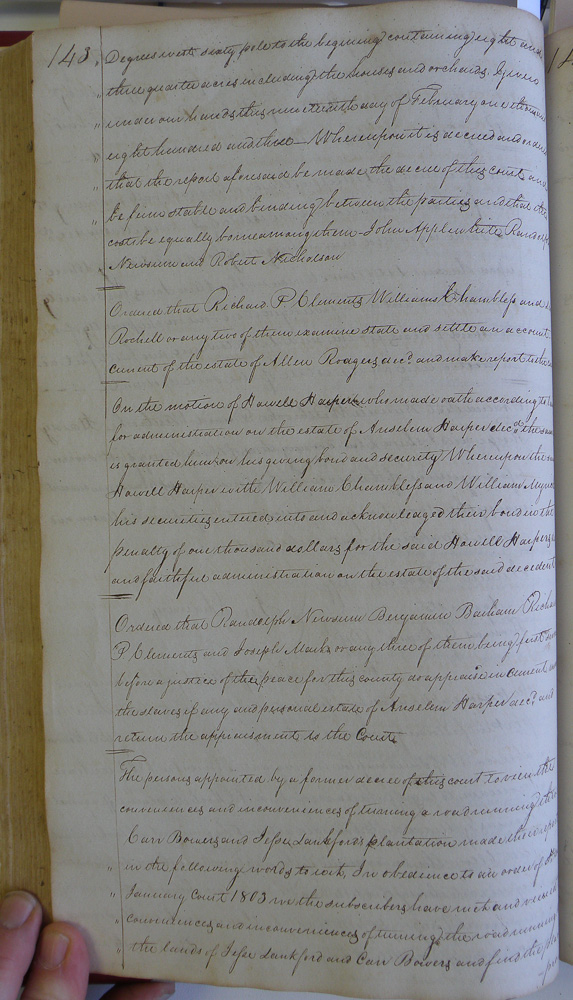 143. Degrees west sixty pole to the begining containing eight and
" three quarter acres including the houses and orchards. Given
" under our hands this nineteenth day of February one thousand
" eight hundred and three — Whereupon it is decreed and ordered
" that the report aforesaid be made the decree of this court and
" be firm stable and binding between the parties and that the
costs be equally borne among them - John Applewhite Randolph
Newsum and Robert Nicholson
Ordered that Richard P Clements Williams Chambless and
Rochell or any two of them examine state and settle an account
current of the estate of Allen Roagers decd. and make report to the
On the motion of Howell Harper who made oath according to
for administration on the estate of Anselm Harper decd. the same
is granted him on his giving bond and security Whereupon the said
Howell Harper with William Chambless and William Myrick
his securities entered into and acknowledged their bond in the
penalty of one thousand dollars for the said Howell Harpers
and faithful administration on the estate of the said decedent
Ordered that Randolph Newsum Benjamin Barham Richard
P Clements and Joseph Marks or any three of them being first
before a justice of the peace for this county do appraise in current
the slaves if any and personal estate of Anselm Harper decd. and
return the appraisment to the Court
The persons appointed by a former decree of this court to view the
conveniences and inconveniences of turning a road running thro
Carr Bowers and Jesse Lankford's plantation made their report
" in the following words to wit, In obedience to an order of
" January Court 1803 we the subscribers have met and viewed
" conveniences and inconveniences of turning the road running
" the lands of Jesse Lankford and Carr Bowers and find the